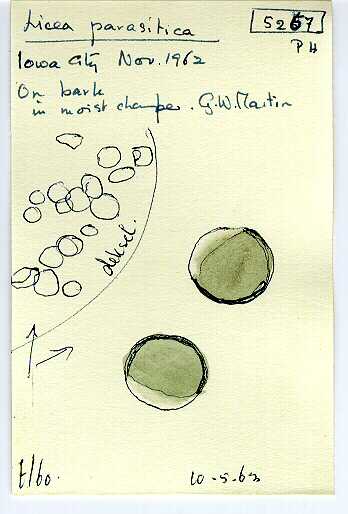 Licea parasitica
5267
PH
Iowa City Nov. 1962
On bark
in moist chamber. G.W. Martin
deksel.
t/60.
10-5-63